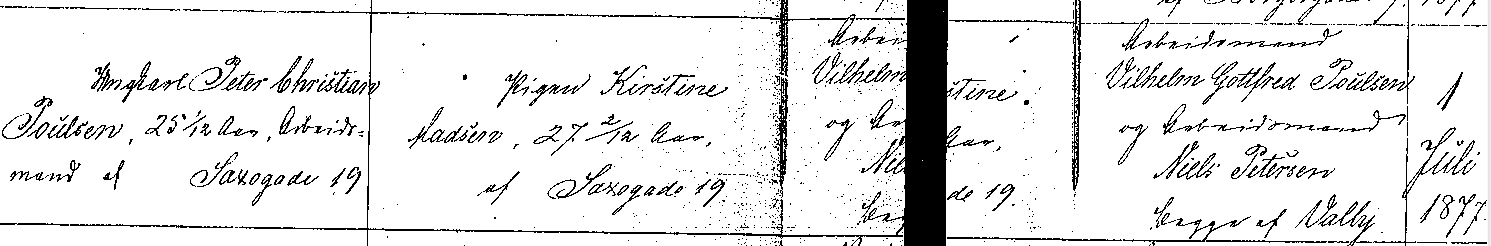 Ungkarl Peter Christian
Poulsen, 25 1/12 Aar, Arbeids-
mand af Saxogade 19
Pigen Kirstine
Madsen, 27 2/12 Aar,
af Saxogade 19
Arbei
Vilhelm
og Ar
Nie
beg
stine.
Aar,
de 19.
Arbeidsmand
Vilhelm Gottfred Poulsen
og Arbeidsmand
Niels Petersen
begge af Valby
1
Juli
1877